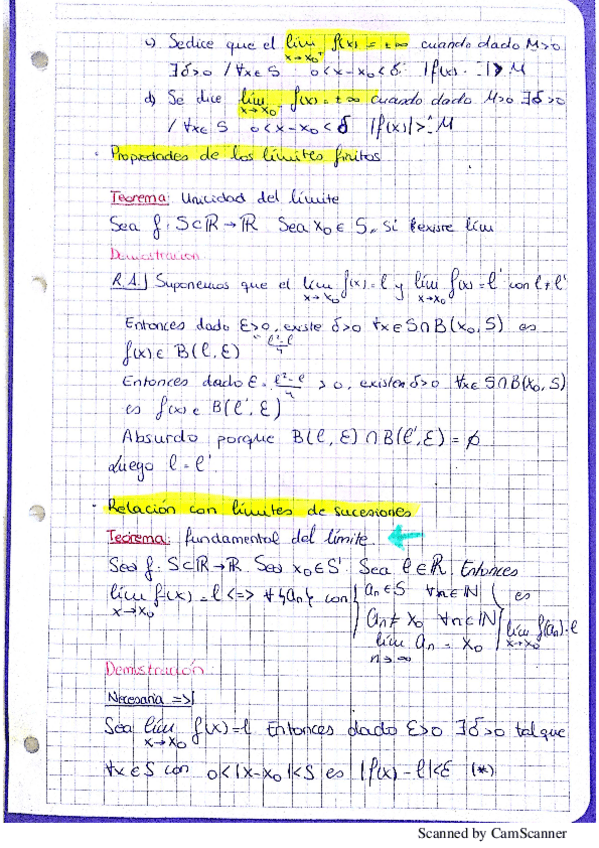 c) Se dice que el lím f(x) = ±∞ cuando dado M>0
x→x₀⁺
∃δ>0 / ∀x∈S 0<x-x₀<δ |f(x)|>M
d) Se dice lím f(x) = ±∞ cuando dado M>0 ∃δ>0
x→x₀
/ ∀x∈S 0<x-x₀<δ |f(x)|>M
· Propiedades de los límites finitos
Teorema: Unicidad del límite
Sea f: S⊂ℝ→ℝ Sea x₀∈S. Si existe lím
Demostración
R.A.] Suponemos que el lím f(x)=l y lím f(x)=l' con l≠l'
x→x₀ x→x₀
Entonces dado ε>0, existe δ>0 ∀x∈S∩B(x₀,S) es
f(x)∈B(l,ε)
Entonces dado ε = l'-l/4 >0, existen δ>0 ∀x∈S∩B(x₀,S)
es f(x)∈B(l',ε)
Absurdo porque B(l,ε)∩B(l',ε)=∅
Luego l=l'
· Relación con límites de sucesiones
Teorema: fundamental del límite
Sea f: S⊂ℝ→ℝ. Sea x₀∈S'. Sea l∈ℝ. Entonces
lím f(x)=l <=> ∀{aₙ} con { aₙ∈S ∀n∈ℕ es
x→x₀ aₙ≠x₀ ∀n∈ℕ lím f(aₙ)=l
lím aₙ = x₀ x→x₀
n→∞
Demostración:
Necesaria =>]
Sea lím f(x)=l Entonces dado ε>0 ∃δ>0 tal que
x→x₀
∀x∈S con 0<|x-x₀|<S es |f(x)-l|<ε (*)
Scanned by CamScanner